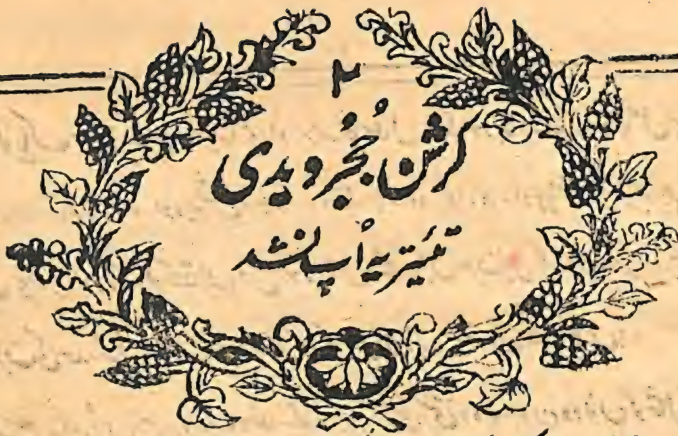 ۳
کرشن جُجُرویدی
تیئتریہ اُپانشد